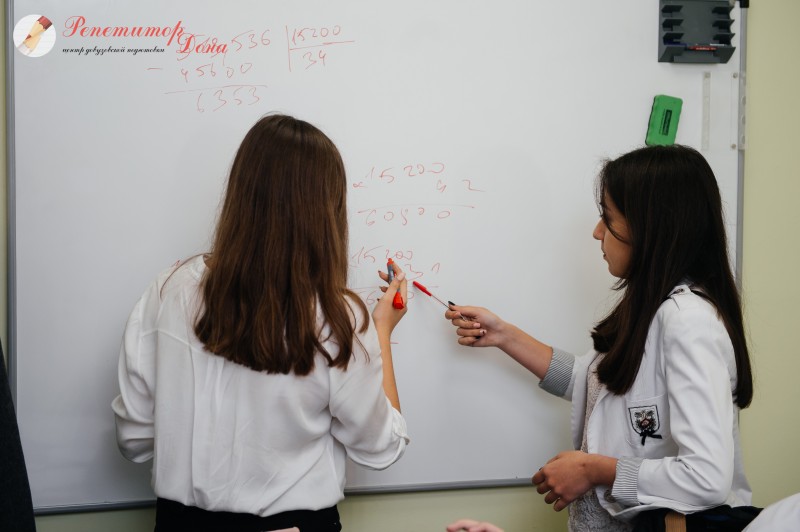 Репетитор
Дона
центр довузовской подготовки
536 | 15200
34
- 45600
6353
× 15200
42
60900
15200
31